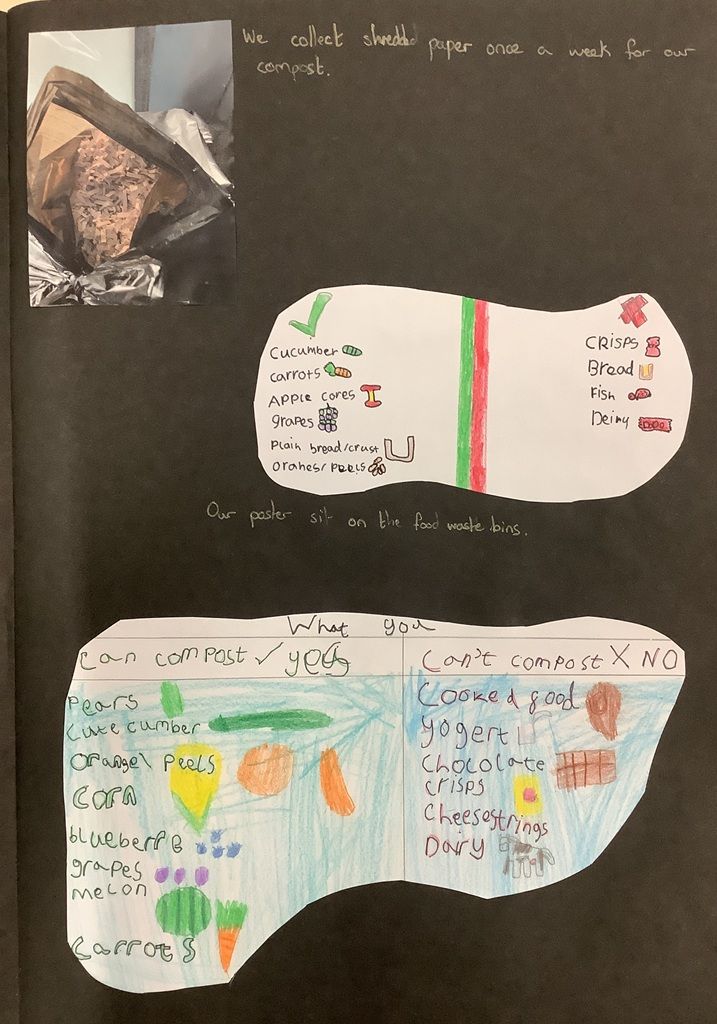 We collect shredded paper once a week for our
compost.
Cucumber
carrots
Apple cores
grapes
Plain bread/crust
oranes/peels
CRisps
Bread
Fish
Deiry
Our poster sit on the food waste bins.
What you
Can compost ✓ yes
Can't compost X NO
Pears
Cute cumber
Orange\ peels
CORN
blueberrie
grapes
melon
Carrots
Cooked good
yogert
Chocolate
crisps
Cheesestrings
Dairy